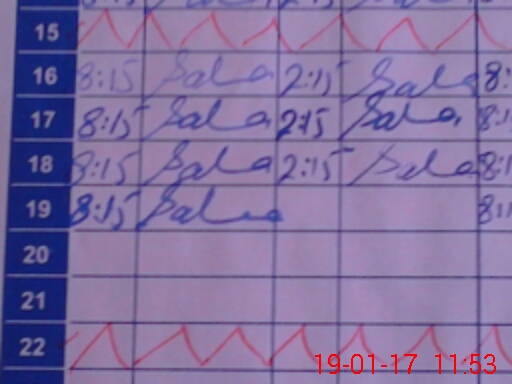 15
16 8:15 Sala 2:15 Sala 8:
17 8:15 Sala 2:15 Sala 8:1
18 8:15 Sala 2:15 Sala 8:1
19 8:15 Sala 8:1
20
21
22
19-01-17 11:53